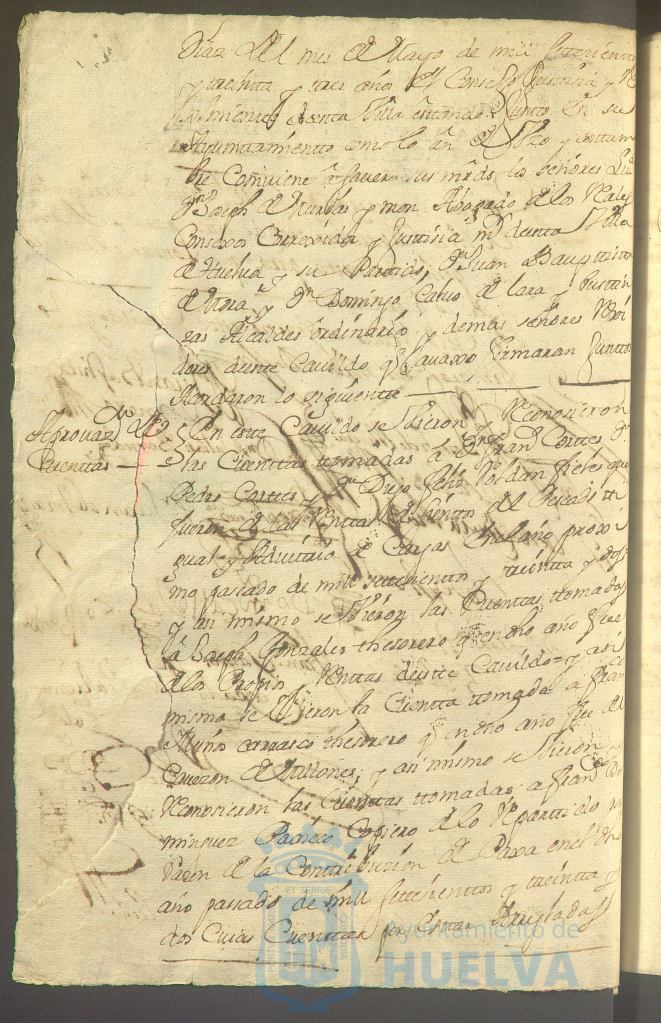 Diaz del mes de Mayo de mill setecientos
y treinta y tres años el Consejo Justicia y
desta Villa estando Junto en su
Ayuntamiento como lo an de Uso y costum
bre Combiene a saver sus mrds los señores Liz
Dn Joseph de y mon Abogado de los Reales
Consexos Correxidor y Justisia mr desta Villa
de Huelva y su Partido; Dn Juan Bauptista
de Mora y Dn Domingo Calvo de Lara y Bustin
sas Alcaldes ordinarios y demas señores Rexi
dores deste Cavildo q avaxo firmaran Juntos
Acordaron lo siguiente
Aprovazon de
Cuenttas
En este Cavildo se Vieron y Reconosieron
las Cuenttas ttomadas a Franco Corttes Dn
Pedro Corttes y Dn Diego Felis Roldan fieles que
fueron de las Renttas de Vientto del
y de Cargas en el año proxi
mo passado de mill settecientos y treintta y dos
y asi mismo se Vieron las Cuenttas ttomadas
a Joseph Gonzales thesorero q en dho año fue
de los Propios y Renttas deste Cavildo y asi
mismo se Vieron la Cuentta ttomada a Franco
Muños Carrasco thesorero q en dho año fue del
Cavezon de Millones; y asi mismo se Vieron y
Reconosieron las Cuenttas ttomadas a Franco Do
minguez Pacheco Copiero de lo Repartido por
razon de la Conttribuzion de Paxa en el dho
año passado de mill settecientos y treintta y
dos Cuias Cuenttas por esttar Arregladas
Ayuntamiento de
HUELVA